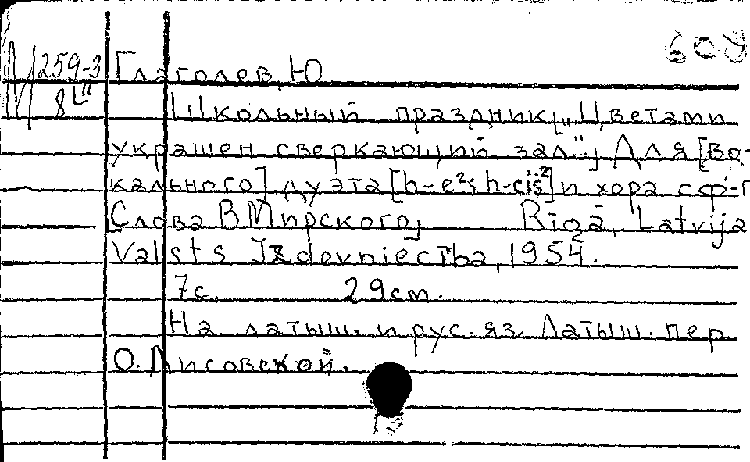 609
М 259-3 Глаголев, Ю.
8 Школьный праздник ["Цветами
украшен сверкающий зал"]. Для [во-
кального] дуэта [h-e²; h-cis²] и хора с ф-п
Слова В. Мирского. Rīgā, Latvijas
Valsts Izdevniecība, 1954.
7с. 29cm.
На латыш. и рус. яз. Латыш. пер.
О. Лисовской.